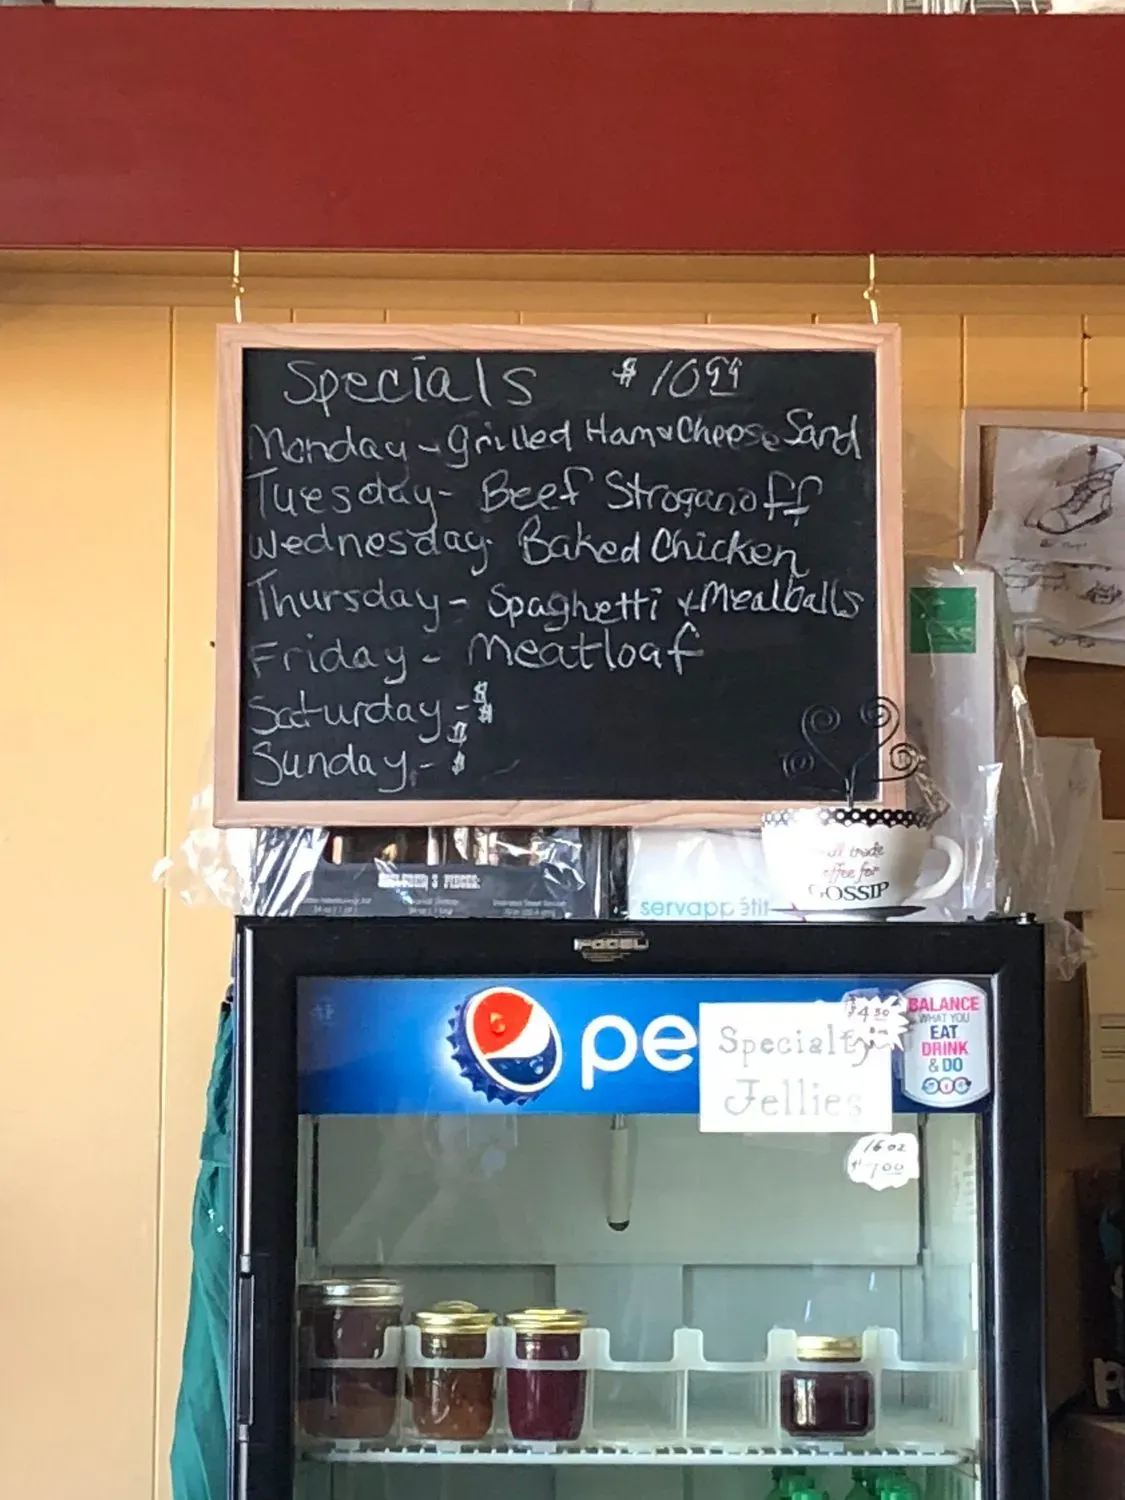 Specials $10.99
Monday - Grilled Ham & Cheese Sand
Tuesday - Beef Stroganoff
Wednesday - Baked Chicken
Thursday - Spaghetti & Mealballs
Friday - Meatloaf
Saturday - $
Sunday - $
3 PIECES:
servappétit
trade
coffee for
GOSSIP
pe
Specialty
Jellies
$4.50
BALANCE
WHAT YOU
EAT
DRINK
& DO
16 oz
$7.00